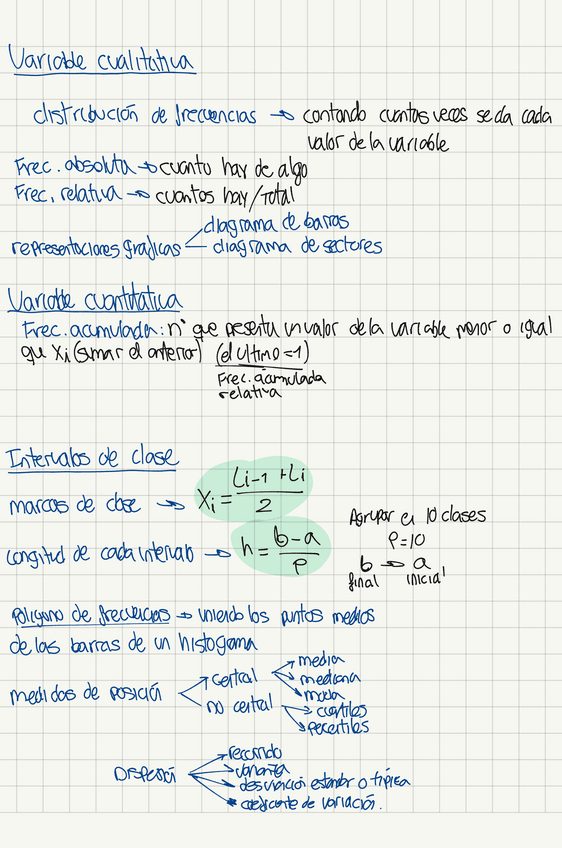 Variable cualitativa
distribución de frecuencias → contando cuantas veces se da cada
valor de la variable
Frec. absoluta → cuanto hay de algo
Frec. relativa → cuantos hay/total
representaciones graficas
diagrama de barras
diagrama de sectores
Variable cuantitativa
Frec. acumulada: nº que presenta un valor de la variable menor o igual
que Xi (sumar el anterior) (el ultimo = 1)
Frec. acumulada
relativa
Intervalos de clase
marcas de clase → Xi = (Li-1 + Li) / 2
longitud de cada intervalo → h = (b-a) / P
Agrupar en 10 clases
P=10
b → a
final inicial
Poligono de frecuencias → uniendo los puntos medios
de las barras de un histograma
medidas de posición
central
media
mediana
moda
no central
cuartiles
percentiles
Dispersión
recorrido
varianza
desviacion estandar o típica
coeficiente de variación.